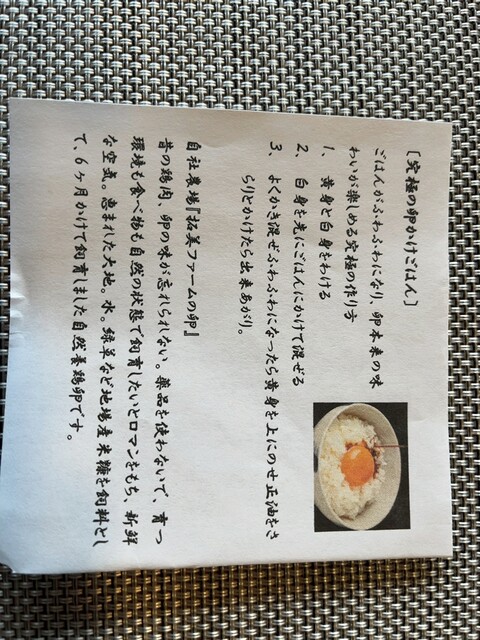 ［究極の卵かけごはん］
ごはんがふわふわになり、卵本来の味
わいが楽しめる究極の作り方
1、黄身と白身をわける
2、白身を先にごはんにかけて混ぜる
3、よくかき混ぜふわふわになったら黄身を上にのせ正油をさ
らりとかけたら出来あがり。
自社農場『拓美ファームの卵』
昔の鶏肉、卵の味が忘れられない。薬品を使わないで、育つ
環境も食べ物も自然の状態で飼育したいとロマンをもち、新鮮
な空気。恵まれた大地。水。緑草など地場産米糠を飼料とし
て、6ヶ月かけて飼育しました自然養鶏卵です。